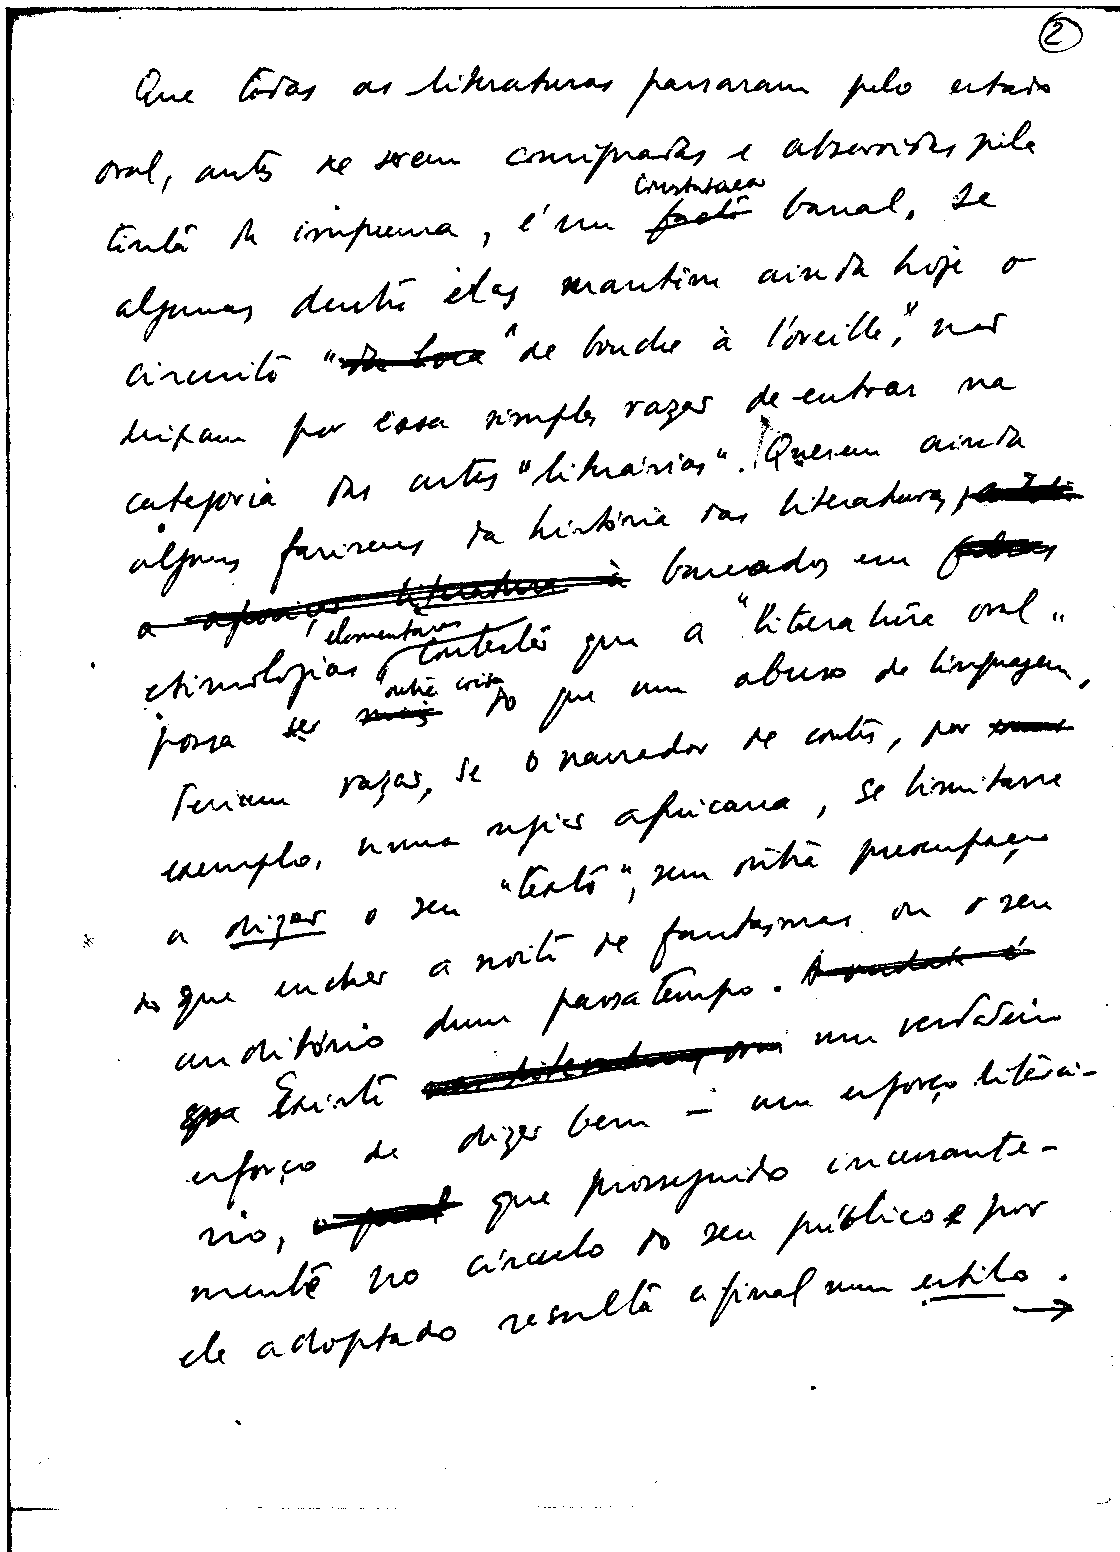 2
Que todas as literaturas passaram pelo estado
oral, antes de serem consignadas e absorvidas pela
constatação
tinta da imprensa, é um facto banal. Se
algumas dentre elas mantêm ainda hoje o
circuito "da boca "de bouche à l'oreille", não
deixam por essa simples razão de entrar na
categoria das artes "literárias". Querem ainda
alguns fariseus da história das literaturas,
a literatura à baseados em
elementares
etimologias, contestar que a "literatura oral"
outra coisa
possa ser mais do que um abuso de linguagem,
Teriam razão, se o narrador de contos, por
exemplo, numa região africana, se limitasse
a dizer o seu "texto", sem outra preocupação
do que encher a noite de fantasmas ou o seu
auditório dum passatempo. A verdade é
que Existe um verdadeiro
esforço de dizer bem – um esforço literá-
rio, o qual que prosseguido incessante-
mente no círculo do seu público e por
ele adoptado resulta afinal num estilo.
→